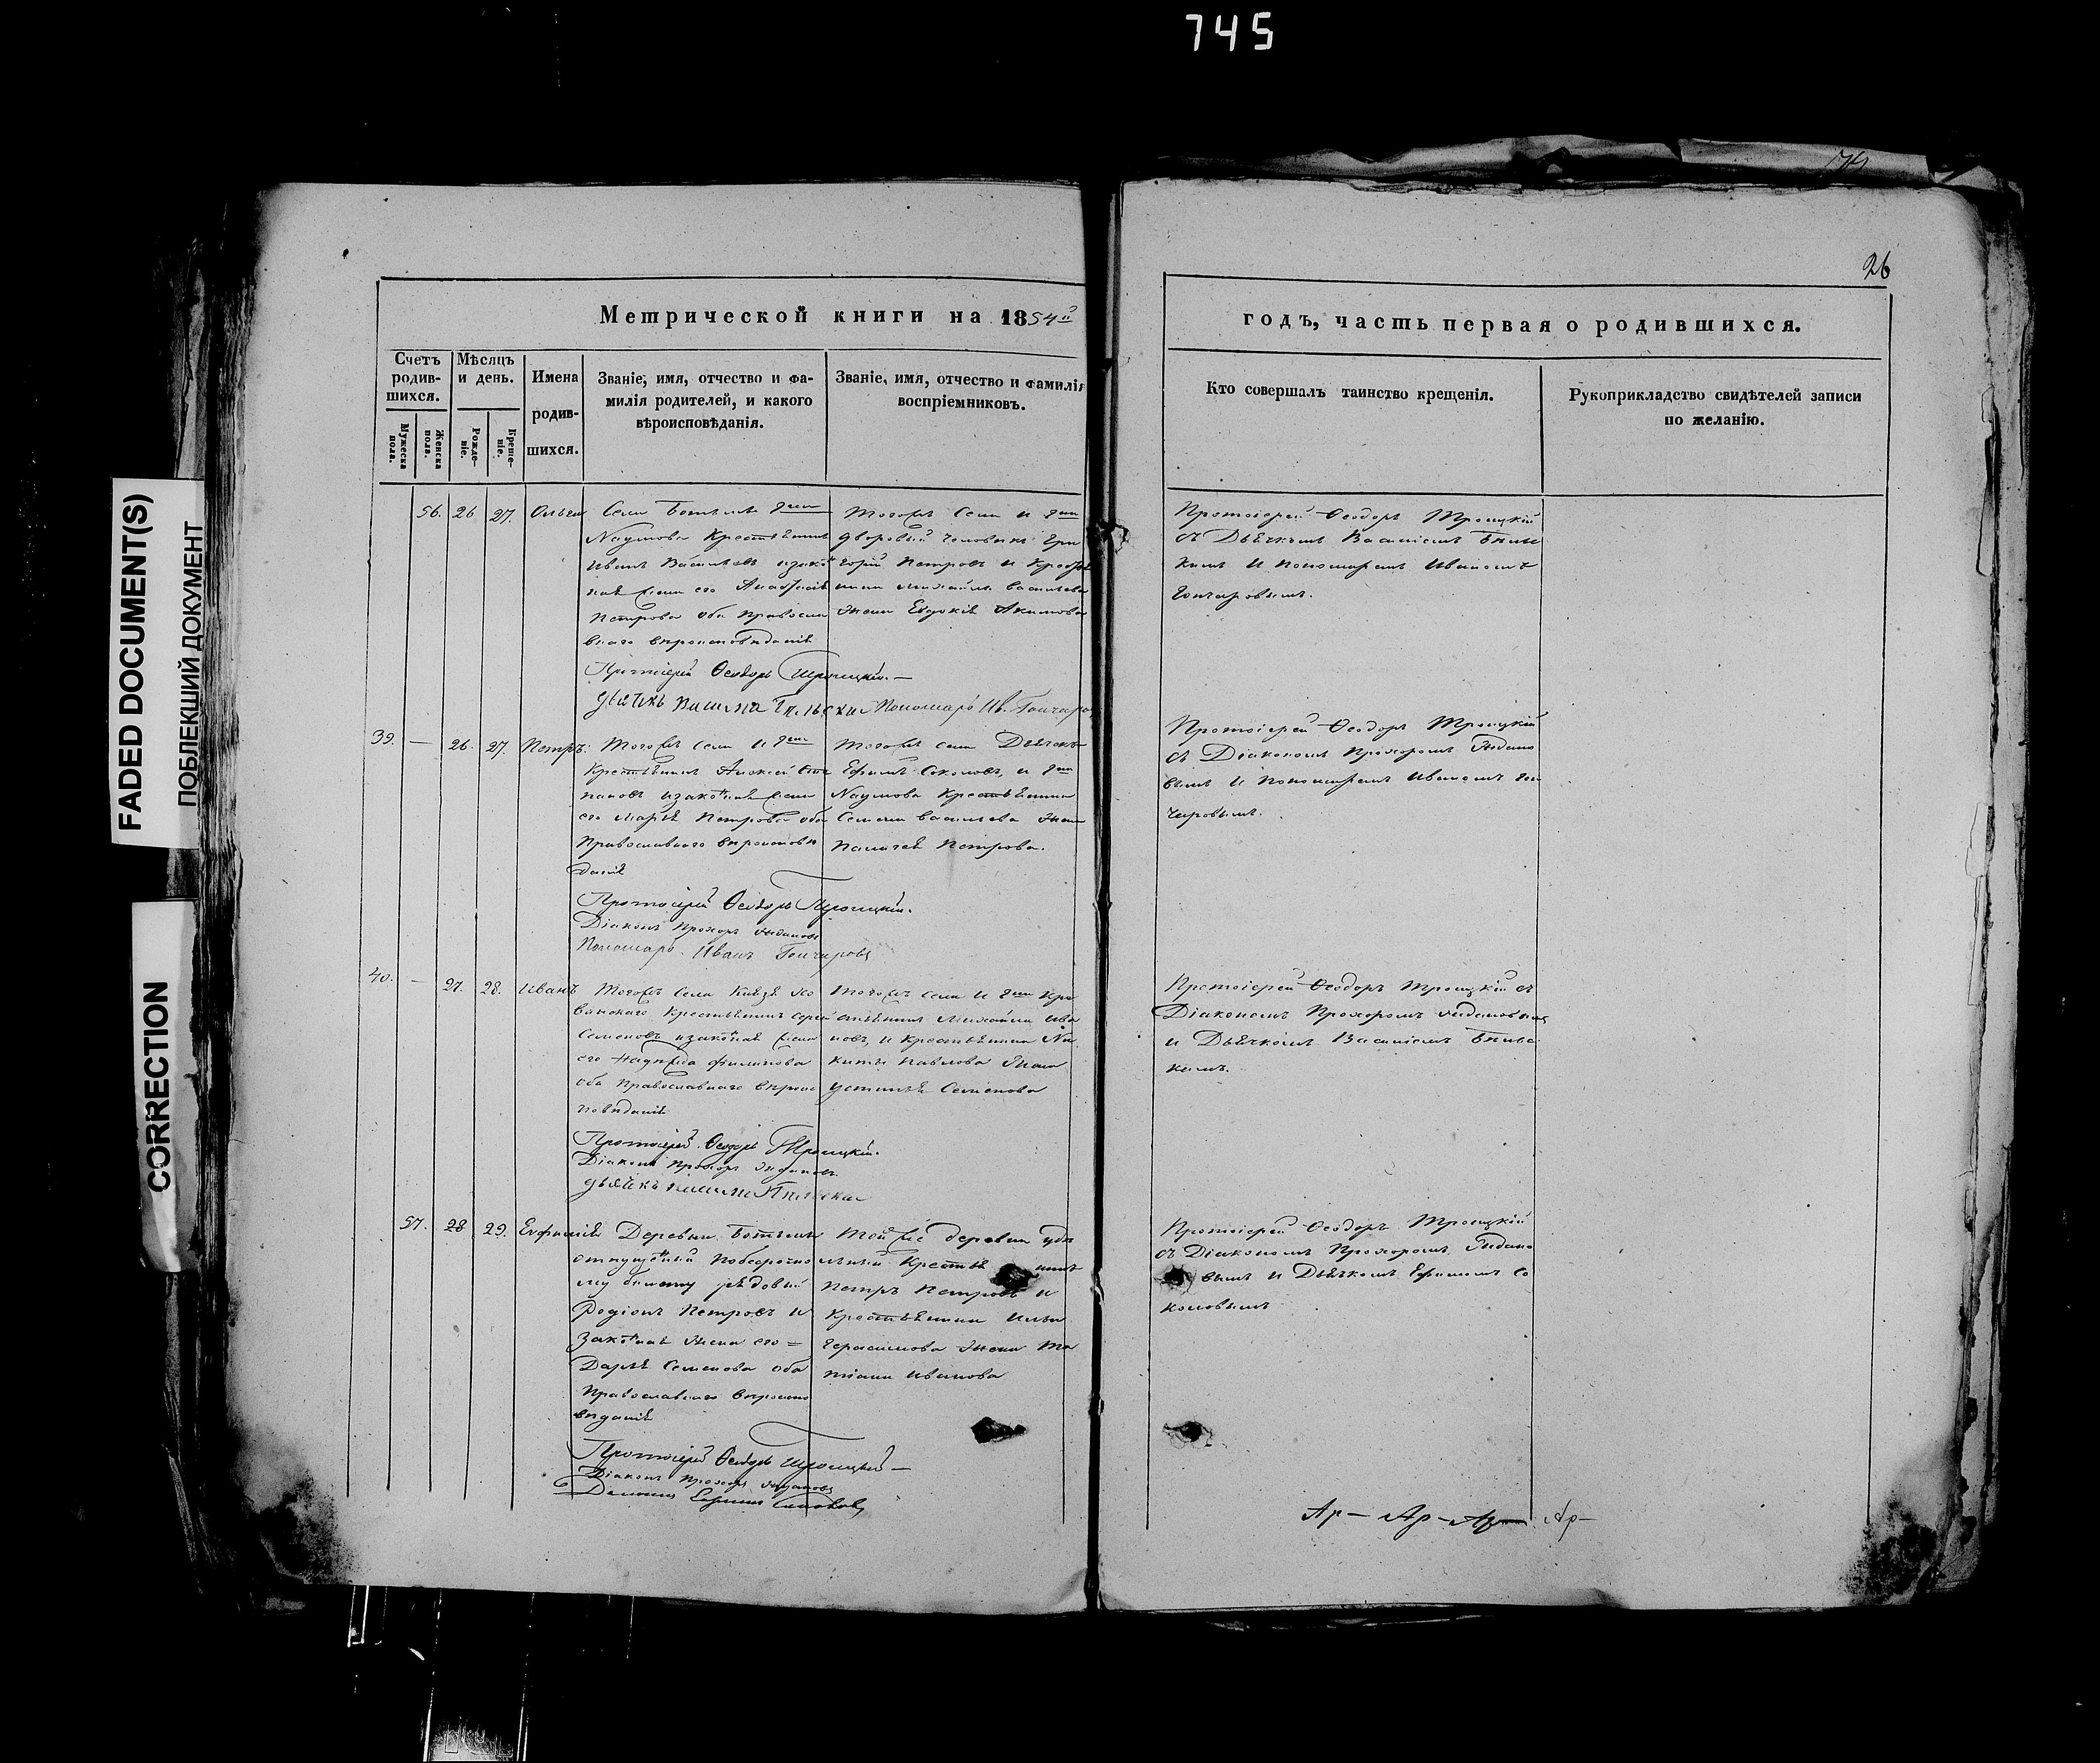 745
26
Метрической книги на 1854й
годъ, часть первая о родившихся.
Счетъ родив-шихся.
Мужеска пола.
Женска пола.
Мѣсяцъ и день.
Рожде-ніе.
Креще-ніе.
Имена
родив-
шихся.
Званіе, имя, отчество и фа-
милія родителей, и какого
вѣроисповѣданія.
Званіе, имя, отчество и фамилія
воспріемниковъ.
Кто совершалъ таинство крещенія.
Рукоприкладство свидѣтелей записи
по желанію.
56. 26 27. Ольга
Села
Наумова Крестьянинъ
Иванъ Васильевъ изако
ная жена его
Петрова оба Православ
наго вероисповеданія
Протоіерей Ѳеодоръ Троицкій.
Тогожъ Села и Гжи
дворовый человекъ Гри
горій Петровъ и Крестья
нина Михайлы Васильева
жена Евдокія Акимова
Пономарь Ив. Гончаров
Протоіерей Ѳеодоръ Троицкій
съ Дьячкомъ Василіемъ
кимъ и Пономаремъ Иваномъ
Гончаровымъ.
39. — 26. 27. Петръ.
Тогожъ Села и Гжи
Крестьянинъ Алексей Сте
пановъ изаконная жена
его Марія Петрова оба
Православнаго вероисповѣ
данія
Протоіерей Ѳеодоръ Троицкій.
Діаконъ Прохоръ Ждановъ
Пономарь Иванъ Гончаровъ
Тогожъ села Дьячокъ
Ефимъ Соколовъ, и Гжи
Наумова Крестьянина
Семена Васильева жена
Пелагея Петрова.
Протоіерей Ѳеодоръ Троицкій
съ Діакономъ Прохоромъ Ждано
вымъ и Пономаремъ Иваномъ Гон
чаровымъ.
40. — 27. 28. Иванъ
Тогожъ Села Князя Хо
ванскаго Крестьянинъ Сергей
Семеновъ изаконная жена
его Надежда Филипова
оба Православнаго вероис
поведанія
Протоіерей Ѳеодоръ Троицкій.
Діаконъ Прохоръ Ждановъ
Тогожъ села и Гжи Кре
стьянинъ Михайла Ива
новъ, и Крестьянина Ни
киты Павлова жена
Устинья Семенова
Протоіерей Ѳеодоръ Троицкій съ
Діакономъ Прохоромъ Ждановымъ
и Дьячкомъ Василіемъ
кимъ.
57. 28 29. Евфимія
Деревни
отпущеный
рядовый
Родіонъ Петровъ и
законная жена его =
Дарья Семенова оба
Православнаго вероиспо
веданія
Протоіерей Ѳеодоръ Троицкій —
Діаконъ Прохоръ Ждановъ
Дьячокъ Ефимъ Соколовъ
Той же деревни уде
льный Крестьянинъ
Петръ Петровъ и
Крестьянина Ильи
Герасимова жена Та
тіана Иванова
Протоіерей Ѳеодоръ Троицкій
съ Діакономъ Прохоромъ Ждано
вымъ и Дьячкомъ Ефимомъ Со
коловымъ
Ар— Ар— Ар— Ар—
FADED DOCUMENT(S)
ПОБЛЕКШИЙ ДОКУМЕНТ
CORRECTION